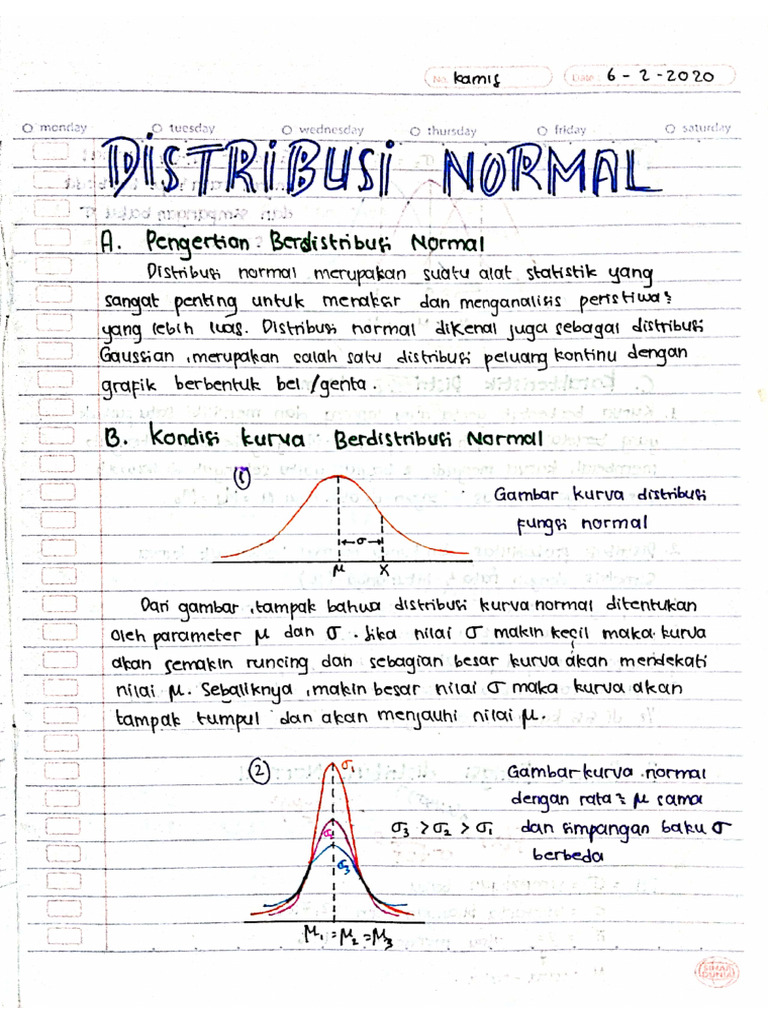 No. Kamis Date: 6 - 2 - 2020
monday tuesday wednesday thursday friday saturday
DISTRIBUSI NORMAL
A. Pengertian Berdistribusi Normal
Distribusi normal merupakan suatu alat statistik yang
sangat penting untuk menaksir dan menganalisis peristiwa²
yang lebih luas. Distribusi normal dikenal juga sebagai distribusi
Gaussian, merupakan salah satu distribusi peluang kontinu dengan
grafik berbentuk bel/genta.
B. Kondisi kurva Berdistribusi Normal
1
Gambar kurva distribusi
fungsi normal
σ
μ X
Dari gambar, tampak bahwa distribusi kurva normal ditentukan
oleh parameter μ dan σ. Jika nilai σ makin kecil maka kurva
akan semakin runcing dan sebagian besar kurva akan mendekati
nilai μ. Sebaliknya, makin besar nilai σ maka kurva akan
tampak tumpul dan akan menjauhi nilai μ.
2
σ₁
σ₂
σ₃
μ₁ = μ₂ = μ₃
σ₃ > σ₂ > σ₁
Gambar kurva normal
dengan rata² μ sama
dan simpangan baku σ
berbeda
SINAR
DUNIA